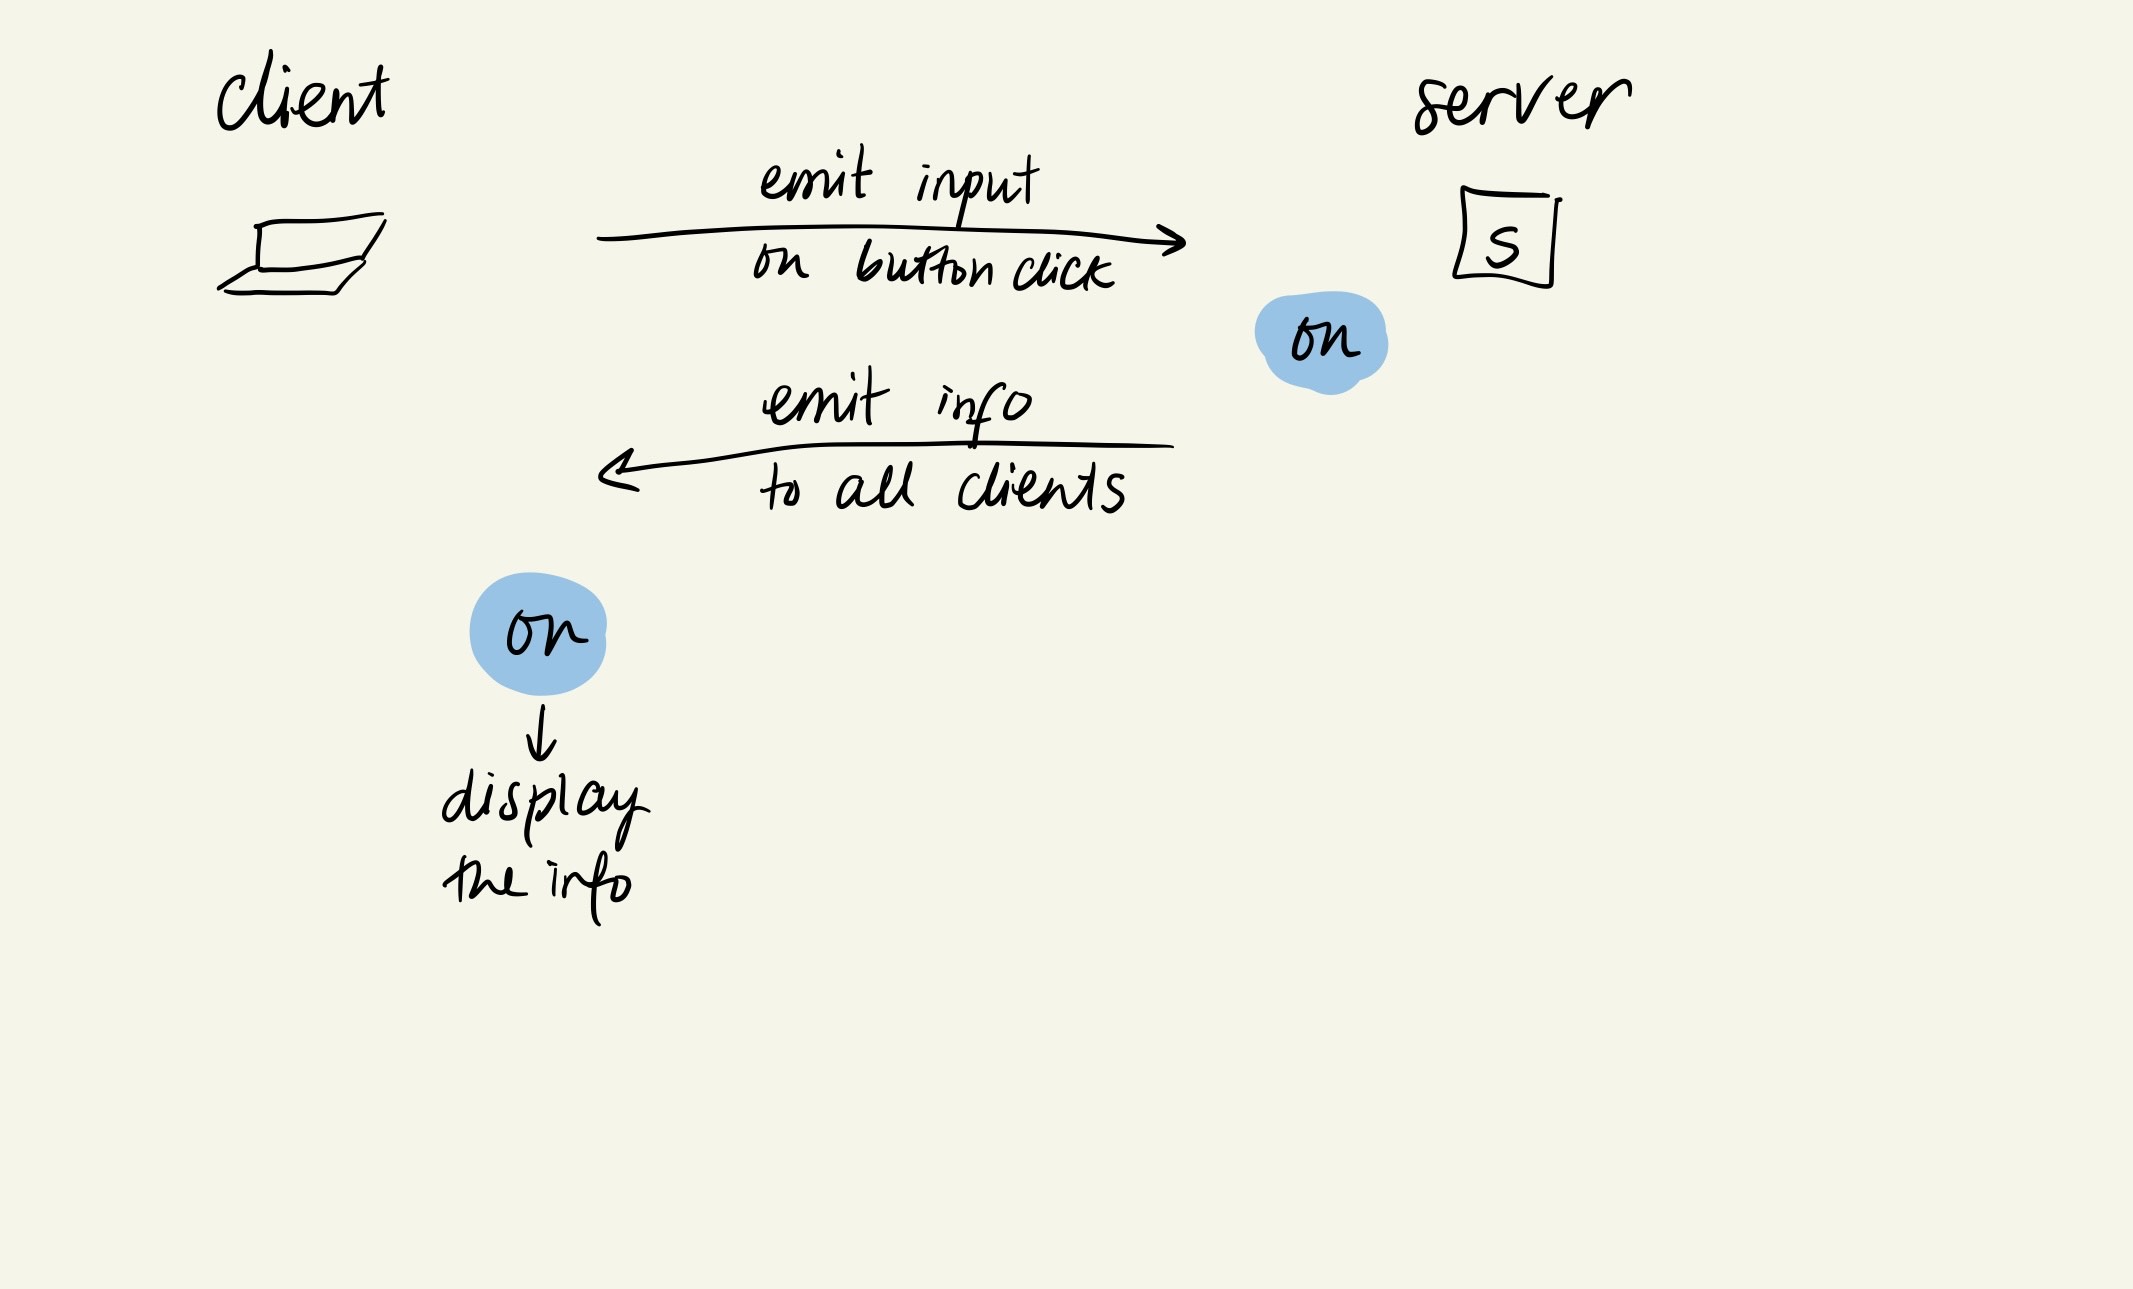 client
server
emit input
on button click
S
on
emit info
to all clients
on
display
the info